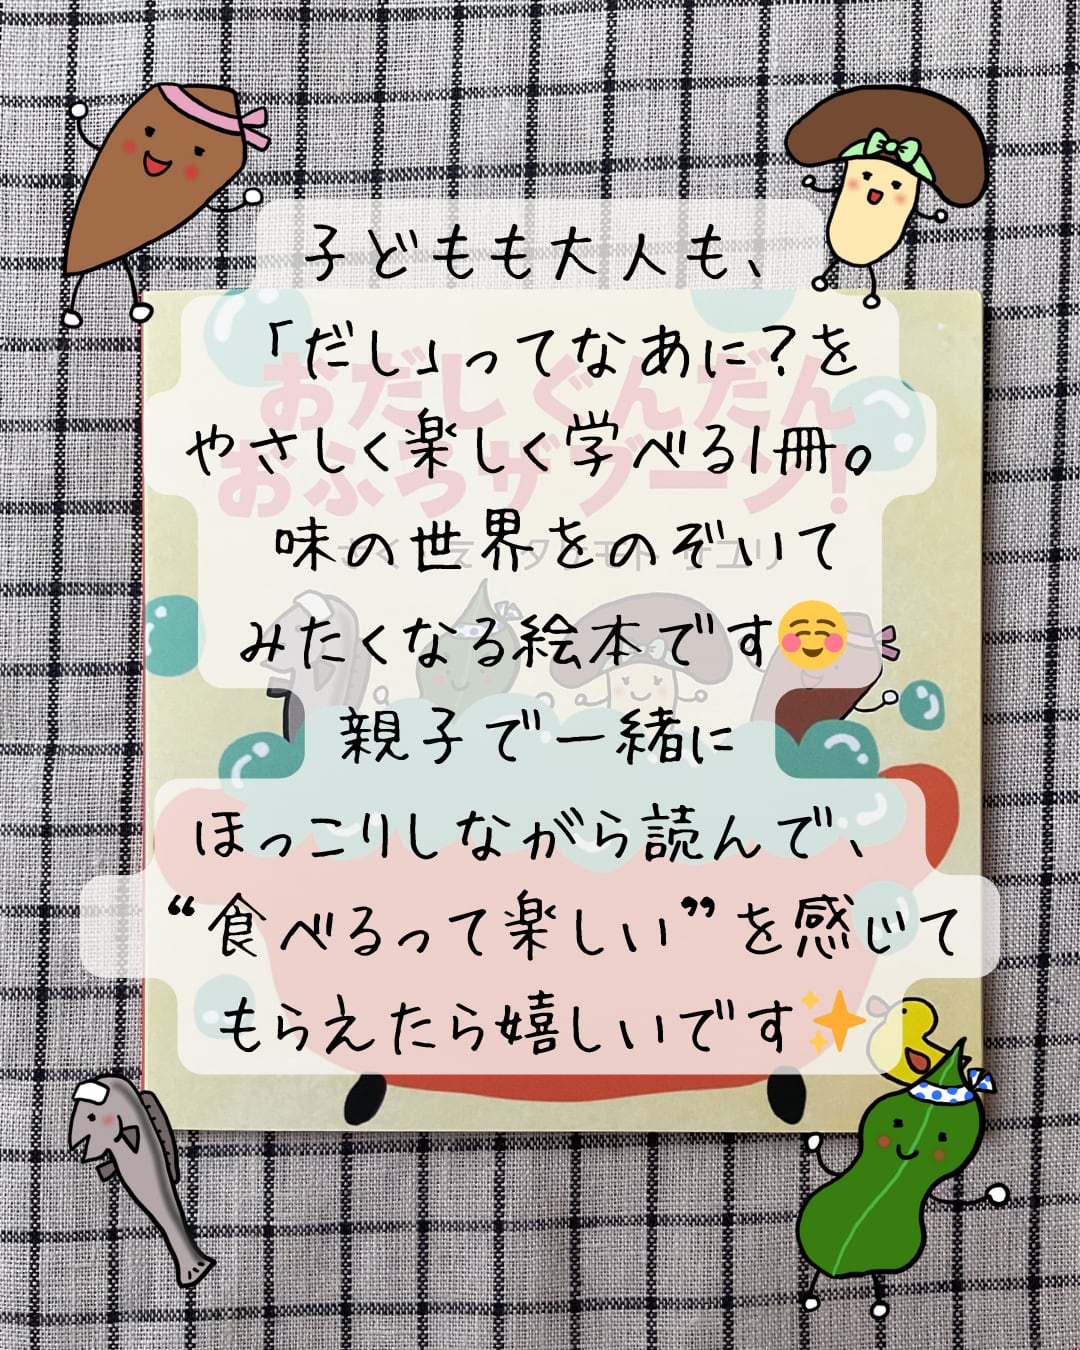 子どもも大人も、
「だし」ってなあに？を
おだしぐんだん
やさしく楽しく学べる1冊。
おふろザブーン！
味の世界をのぞいて
みたくなる絵本です☺️
親子で一緒に
ほっこりしながら読んで、
“食べるって楽しい”を感じて
もらえたら嬉しいです✨